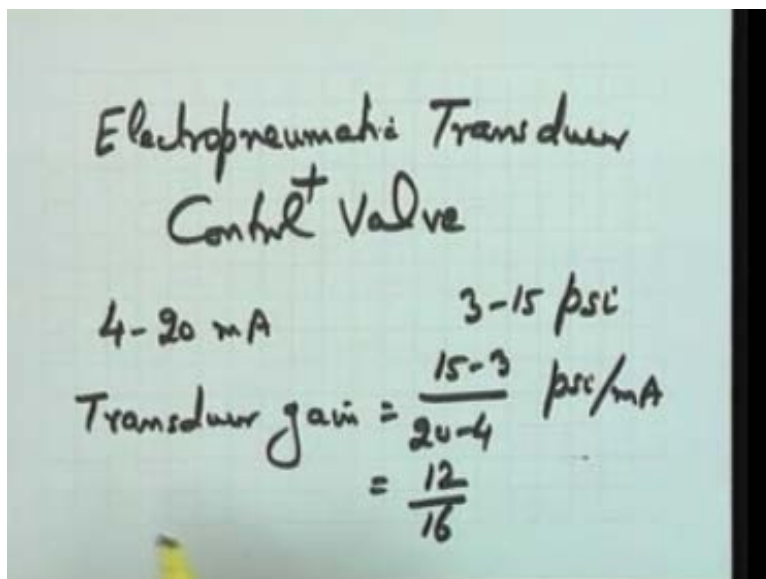 Electropneumatic Transducer
+
Control Valve
4-20 mA 3-15 psi
Transducer gain = 15-3 / 20-4 psi/mA
= 12 / 16